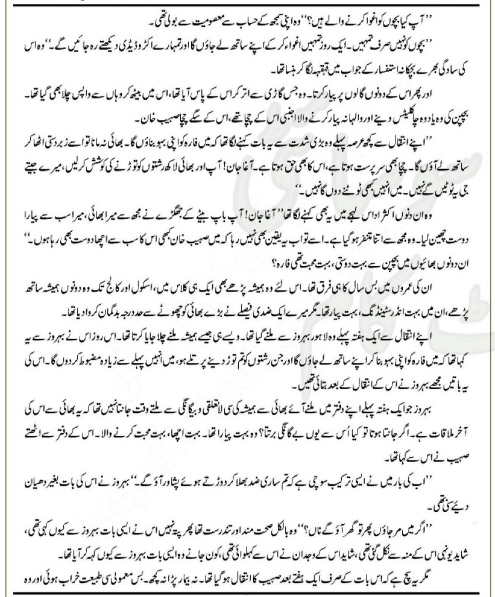 ’’آپ کیا بچوں کو اغوا کرنے والے ہیں؟‘‘ وہ اپنی سمجھ کے حساب سے معصومیت سے بولی تھی۔
’’بچوں کو نہیں صرف تمہیں۔ ایک روز تمہیں اغواء کر کے اپنے ساتھ لے جاؤں گا اور تمہارے اکڑو ڈیڈی دیکھتے رہ جائیں گے۔‘‘ وہ اس
کی سادگی بھرے بچکانہ استفسار کے جواب میں قہقہہ لگا کر ہنسا تھا۔
اور پھر اس کے دونوں گالوں پر پیار کرتا۔ وہ جس گاڑی سے اتر کر اس کے پاس آیا تھا، اس میں بیٹھ کر وہاں سے واپس چلا بھی گیا تھا۔
بچپن کی وہ یاد وہ چاکلیٹس دینے اور والہانہ پیار کرنے والا اجنبی اس کے چچا تھے، اس کے سگے چچا صہیب خان۔
’’اپنے انتقال سے کچھ عرصہ پہلے وہ بڑی شدت سے یہ بات کہنے لگا تھا کہ میں فارہ کو اپنی بہو بناؤں گا۔ بھائی نہ مانا تو اسے زبردستی اٹھا کر
ساتھ لے آؤں گا۔ چچا بھی سرپرست ہوتا ہے، اس کا بھی حق ہوتا ہے۔ آغا جان! آپ اور بھائی لاکھ رشتوں کو توڑنے کی کوشش کر لیں، میرے جیتے
جی یہ ٹوٹیں گے نہیں۔ میں انہیں کبھی ٹوٹنے دوں گا نہیں۔‘‘
وہ ان دنوں اکثر اداس لہجے میں یہ بھی کہنے لگا تھا’’ آغا جان! آپ باپ بیٹے کے جھگڑے نے مجھ سے میرا بھائی، میرا سب سے پیارا
دوست چھین لیا۔ وہ مجھ سے اتنا متنفر ہو گیا ہے۔ اسے تو اب یہ یقین بھی نہیں رہا کہ میں صہیب خان کبھی اس کا سب سے اچھا دوست بھی رہا ہوں۔‘‘
ان دونوں بھائیوں میں بچپن سے بہت دوستی، بہت محبت تھی فارہ؟
ان کی عمروں میں بس سال کا ہی فرق تھا۔ اس لئے وہ ہمیشہ پڑھے بھی ایک ہی کلاس میں، اسکول اور کالج تک۔ وہ دونوں ہمیشہ ساتھ
پڑھے، ان میں بہت انڈر اسٹینڈنگ، بہت پیار تھا۔ مگر میرے ایک ضدی فیصلے نے بڑے بھائی کو چھوٹے سے حد درجہ بدگمان کروا دیا تھا۔
اپنے انتقال سے ایک ہفتہ پہلے وہ لاہور بہروز سے ملنے گیا تھا۔ ویسے ہی جیسے ہمیشہ ملنے چلا جایا کرتا تھا۔ اس روز اس نے بہروز سے یہ
کہا تھا کہ میں فارہ کو اپنی بہو بنا کر اپنے ساتھ لے جاؤں گا اور جن رشتوں کو تم توڑ دینے پر تلے ہو، میں انہیں پہلے سے زیادہ مضبوط کر دوں گا۔ اس کی
یہ باتیں مجھے بہروز نے اس کے انتقال کے بعد بتائی تھیں۔
بہروز جو ایک ہفتہ پہلے اپنے دفتر میں ملنے آئے بھائی سے ہمیشہ کی سی لاتعلقی و بیگانگی سے ملتے وقت جانتا نہیں تھا کہ یہ بھائی سے اس کی
آخر ملاقات ہے۔ اگر جانتا ہوتا تو کیا اُس سے یوں بے گانگی برتتا؟ وہ بہت پیارا تھا۔ بہت اچھا، بہت محبت کرنے والا۔ اس کے دفتر سے اٹھتے
صہیب نے اس سے کہا تھا۔
’’اب کی بار میں نے ایسی ترکیب سوچی ہے کہ تم ساری ضد بھلا کر دوڑتے ہوئے پشاور آؤ گے۔‘‘ بہروز نے اس کی بات بغیر دھیان
دیئے سنی تھی۔
’’اگر میں مر جاؤں پھر تو گھر آؤ گے ناں؟‘‘ وہ بالکل صحت مند اور تندرست تھا پھر پتہ نہیں اس نے ایسی بات بہروز سے کیوں کہی تھی،
شاید یونہی اس کے منہ سے نکل گئی تھی، شاید اس کے وجدان نے اس سے کہلوائی تھی، کون جانے وہ ایسی بات بہروز سے کیوں کہہ کر آیا تھا۔
مگر یہ سچ ہے کہ اس بات کے صرف ایک ہفتے بعد صہیب کا انتقال ہو گیا تھا۔ نہ بیمار پڑا نہ کچھ۔ بس معمولی سی طبیعت خراب ہوئی اور وہ